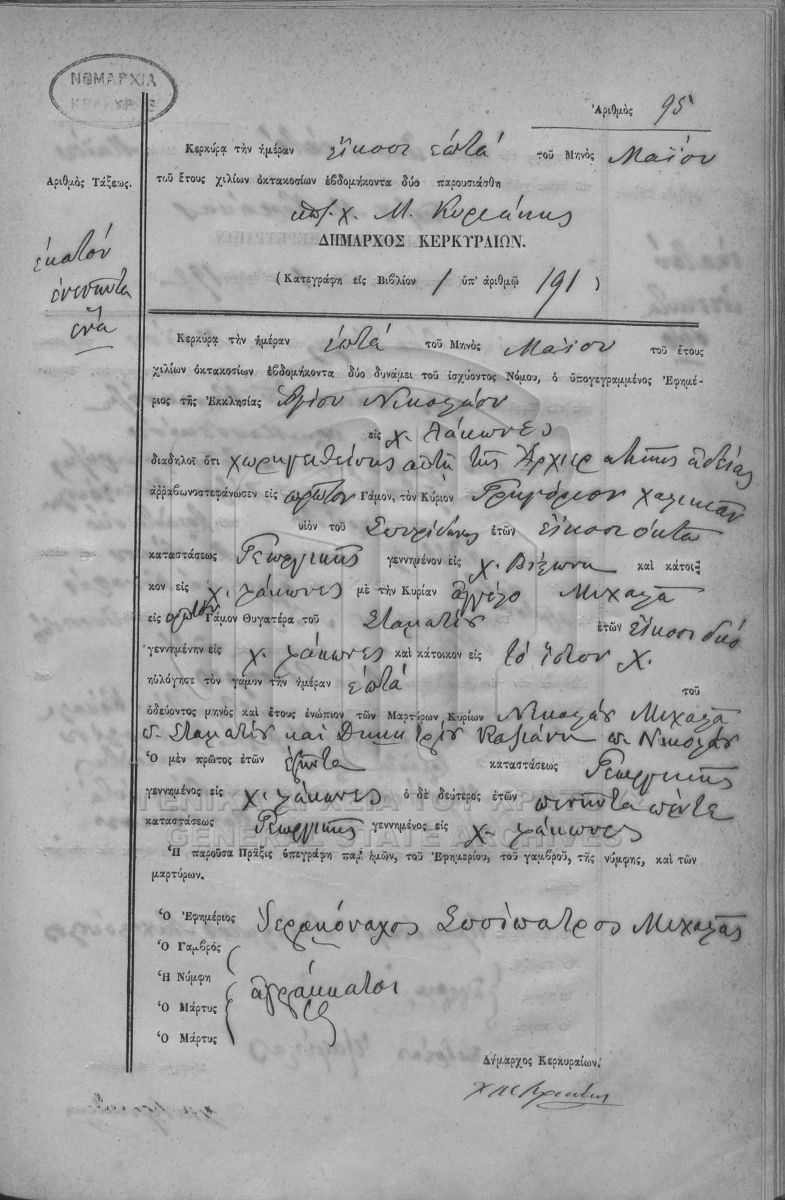 ΝΟΜΑΡΧΙΑ
ΚΕΡΚΥΡΑΣ
Ἀριθμὸς 95
Κερκύρᾳ τὴν ἡμέραν εἴκοσι ἑπτά τοῦ Μηνὸς Μαΐου
τοῦ ἔτους χιλίων ὀκτακοσίων ἑβδομήκοντα δύο παρουσιάσθη
Μ. Κυριάκης
ΔΗΜΑΡΧΟΣ ΚΕΡΚΥΡΑΙΩΝ.
(Κατεγράφη εἰς Βιβλίον 1 ὑπ' ἀριθμῷ 191)
Ἀριθμὸς Τάξεως.
ἑκατόν
ἐνενῆντα
ἕνα
Κερκύρᾳ τὴν ἡμέραν ἑπτά τοῦ Μηνὸς Μαΐου τοῦ ἔτους
χιλίων ὀκτακοσίων ἑβδομήκοντα δύο δυνάμει τοῦ ἰσχύοντος Νόμου, ὁ ὑπογεγραμμένος Ἐφημέ-
ριος τῆς Ἐκκλησίας Ἁγίου Νικολάου
εἰς χ. Λάκωνες
διαδηλοῖ ὅτι χωρηγειθείσης αὐτῷ τῆς Ἀρχιερατικῆς ἀδείας
ἀῤῥαβωνοστεφάνωσεν εἰς πρῶτον Γάμον, τὸν Κύριον Γρηγόριον Χαλικιᾶν
υἱὸν τοῦ Σπυρίδωνος ἐτῶν εἴκοσι ὀκτώ
καταστάσεως Γεωργικῆς γεννημένον εἰς χ. καὶ κάτοι-
κον εἰς χ. Λάκωνες μὲ τὴν Κυρίαν Ἀγγέλο Μιχαλᾶ
εἰς πρῶτον Γάμον Θυγατέρα τοῦ Σταματίου ἐτῶν εἴκοσι δύο
γεννημένην εἰς χ. Λάκωνες καὶ κάτοικον εἰς τὸ ἴδιον χ.
ηὐλόγησε τὸν γάμον τὴν ἡμέραν ἑπτά τοῦ
ὁδεύοντος μηνὸς καὶ ἔτους ἐνώπιον τῶν Μαρτύρων Κυρίων Νικολάου Μιχαλᾶ
π. Σταματίου καὶ Δημητρίου π. Νικολάου
Ὁ μὲν πρῶτος ἐτῶν ἑξῆντα καταστάσεως Γεωργικῆς
γεννημένος εἰς χ. Λάκωνες ὁ δὲ δεύτερος ἐτῶν πενῆντα πέντε
καταστάσεως Γεωργικῆς γεννημένος εἰς χ. Λάκωνες
ΓΕΝΙΚΑ ΑΡΧΕΙΑ ΤΟΥ ΚΡΑΤΟΥΣ
GENERAL STATE ARCHIVES
Ἡ παροῦσα Πρᾶξις ὑπεγράφη παρ' ἡμῶν, τοῦ Ἐφημερίου, τοῦ γαμβροῦ, τῆς νύμφης, καὶ τῶν
μαρτύρων.
Ὁ Ἐφημέριος Ἱερομόναχος Σωσίπατρος Μιχαλᾶς
Ὁ Γαμβρός
Ἡ Νύμφη ἀγράμματοι
Ὁ Μάρτυς
Ὁ Μάρτυς
Δήμαρχος Κερκυραίων.